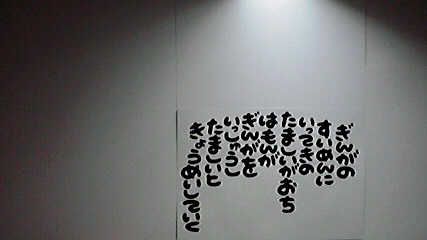 ぎんがの
すいめんに
いってきの
たましいがおち
はもんが
ぎんがを
いっしゅうこ
たましいと
きょうめいしていく